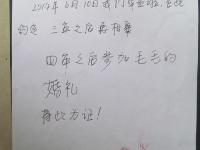 2014年6月10日我们毕业啦，在此
约定 三年之后再相聚
四年之后参加毛毛的
婚礼
特此为证！